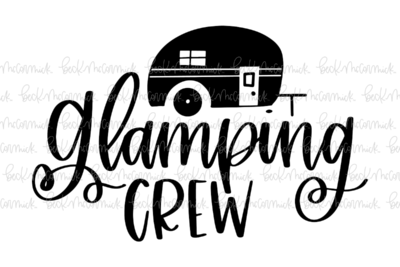 glamping
CREW